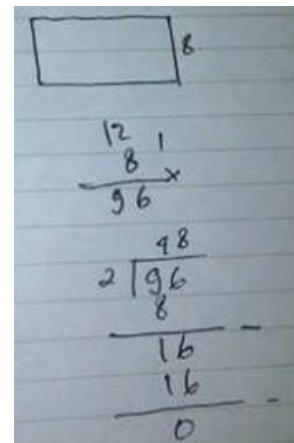 8
12 1
8 ×
96
48
2 96
8
16 -
16
0 -